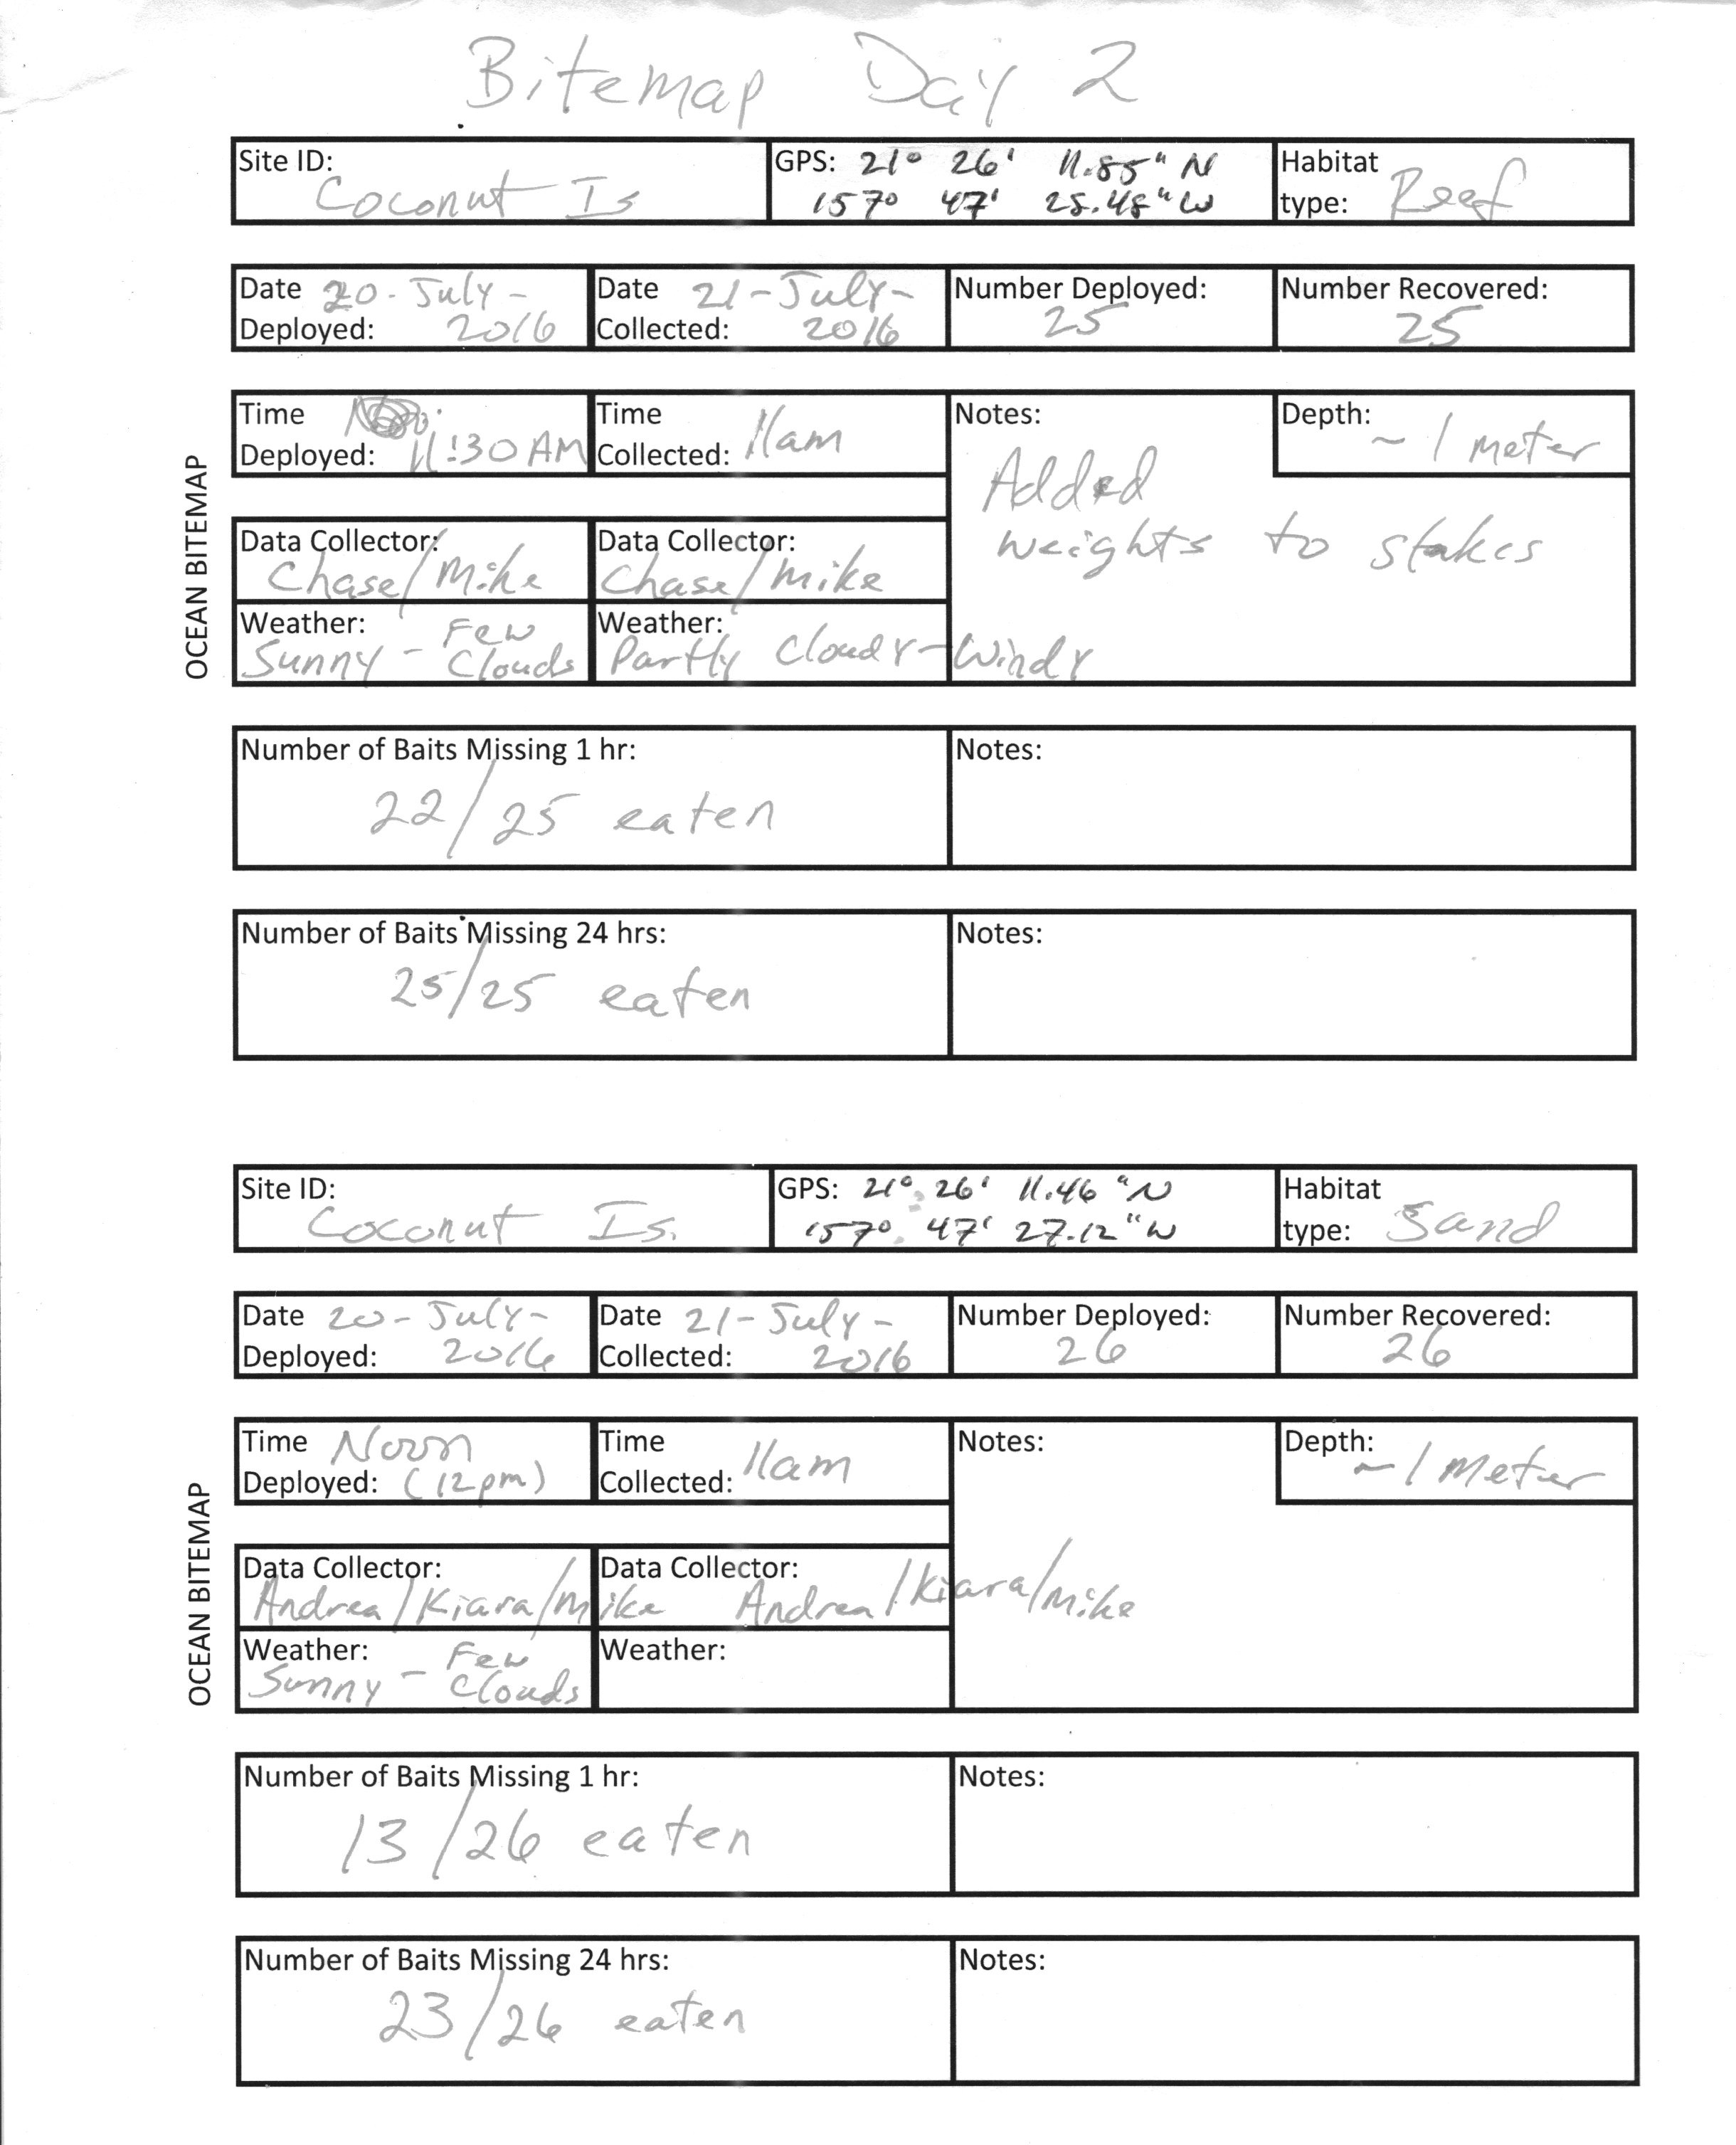 Bitemap Day 2
Site ID: Coconut Is
GPS: 21° 26' 11.85" N
157° 47' 25.48" W
Habitat type: Reef
Date Deployed: 20-July-2016
Date Collected: 21-July-2016
Number Deployed: 25
Number Recovered: 25
Time Deployed: 11:30 AM
Time Collected: 11am
Notes: Added
weights to stakes
Depth: ~ 1 meter
OCEAN BITEMAP
Data Collector: Chase/Mike
Data Collector: Chase/Mike
Weather: Sunny - Few Clouds
Weather: Partly Cloudy-Windy
Number of Baits Missing 1 hr:
22/25 eaten
Notes:
Number of Baits Missing 24 hrs:
25/25 eaten
Notes:
Site ID: Coconut Is.
GPS: 21° 26' 11.46 "N
157° 47' 27.12 "W
Habitat type: Sand
Date Deployed: 20-July-2016
Date Collected: 21-July-2016
Number Deployed: 26
Number Recovered: 26
Time Deployed: Noon (12pm)
Time Collected: 11am
Notes:
Depth: ~ 1 Meter
OCEAN BITEMAP
Data Collector: Andrea/Kiara/Mike
Data Collector: Andrea/Kiara/Mike
Weather: Sunny - Few Clouds
Weather:
Number of Baits Missing 1 hr:
13/26 eaten
Notes:
Number of Baits Missing 24 hrs:
23/26 eaten
Notes: